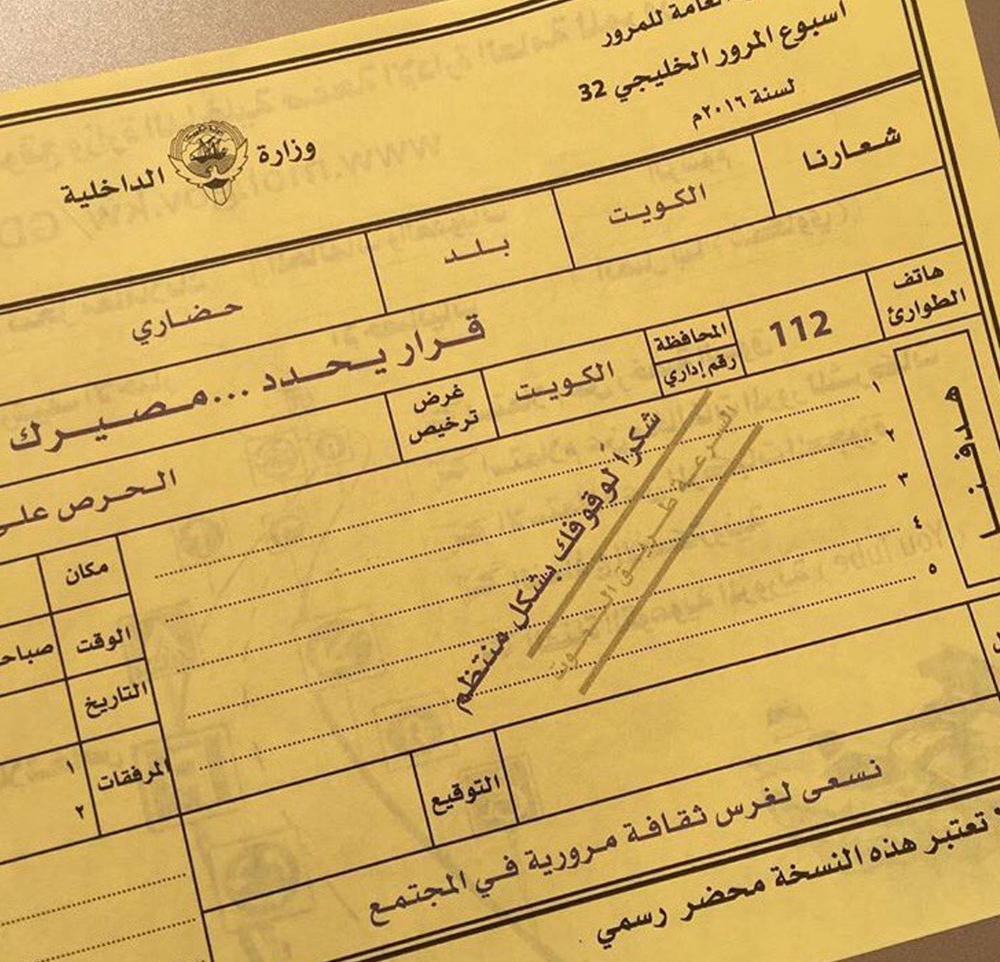 العامة للمرور
اسبوع المرور الخليجي 32
لسنة ٢٠١٦م
وزارة الداخلية
شعارنا
الكويت
بلد
حضاري
هاتف الطوارئ
112
المحافظة
رقم إداري
الكويت
غرض ترخيص
قرار يحدد ... مصيرك
هدفنا
الحرص على
١
٢
٣
٤
٥
شكراً لوقوفك بشكل منتظم
مكان
الوقت
صباحـ
التاريخ
المرفقات
١
٢
التوقيع
نسعى لغرس ثقافة مرورية في المجتمع
تعتبر هذه النسخة محضر رسمي